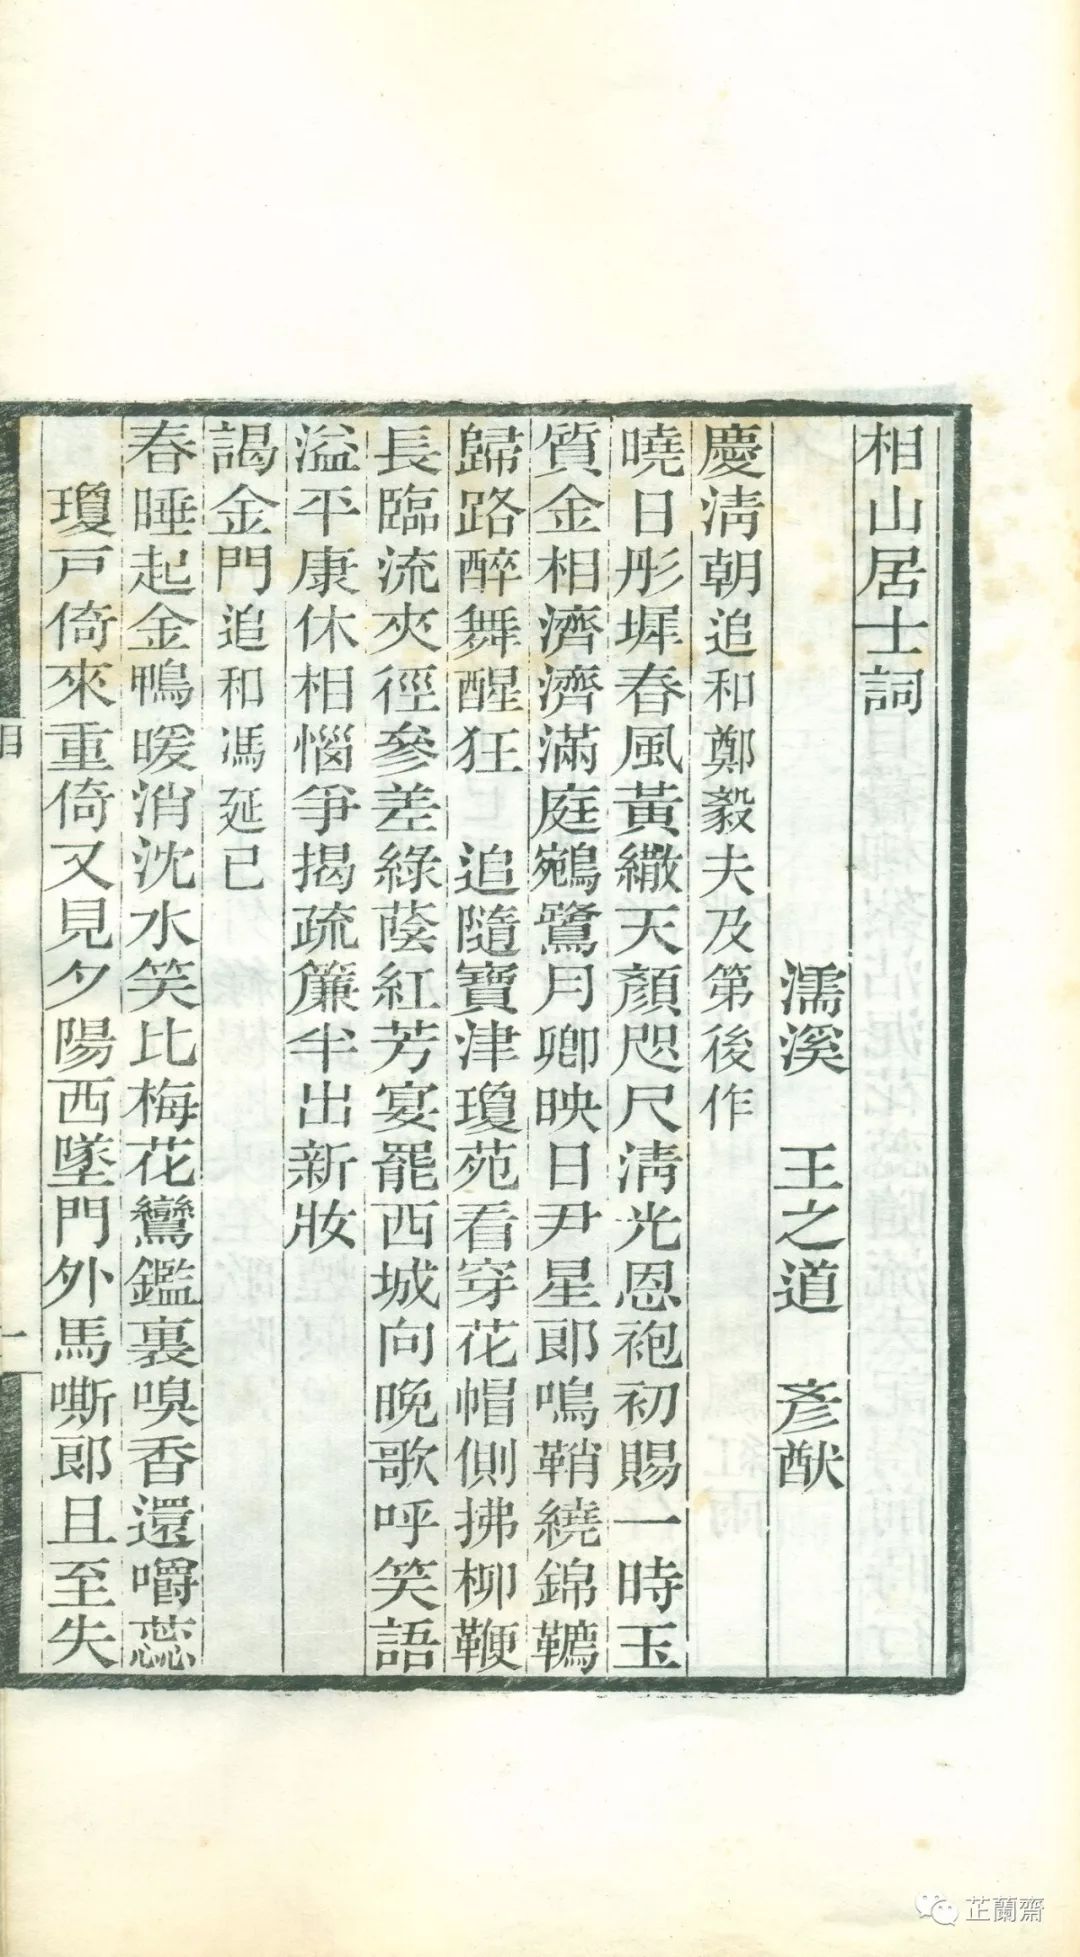 相山居士詞
濡溪　王之道　彥猷
慶清朝追和鄭毅夫及第後作
曉日彤墀春風黃繖天顏咫尺清光恩袍初賜一時玉
質金相濟濟滿庭鵷鷺月卿映日尹星郎鳴鞘繞錦韉
歸路醉舞醒狂　追隨寶津瓊苑看穿花帽側拂柳鞭
長臨流夾徑參差綠蔭紅芳宴罷西城向晚歌呼笑語
溢平康休相惱爭揭疏簾半出新妝
謁金門追和馮延己
春睡起金鴨暖消沈水笑比梅花鸞鑑裏嗅香還嚼蕊
瓊戸倚來重倚又見夕陽西墜門外馬嘶郎且至失
一
芷蘭齋